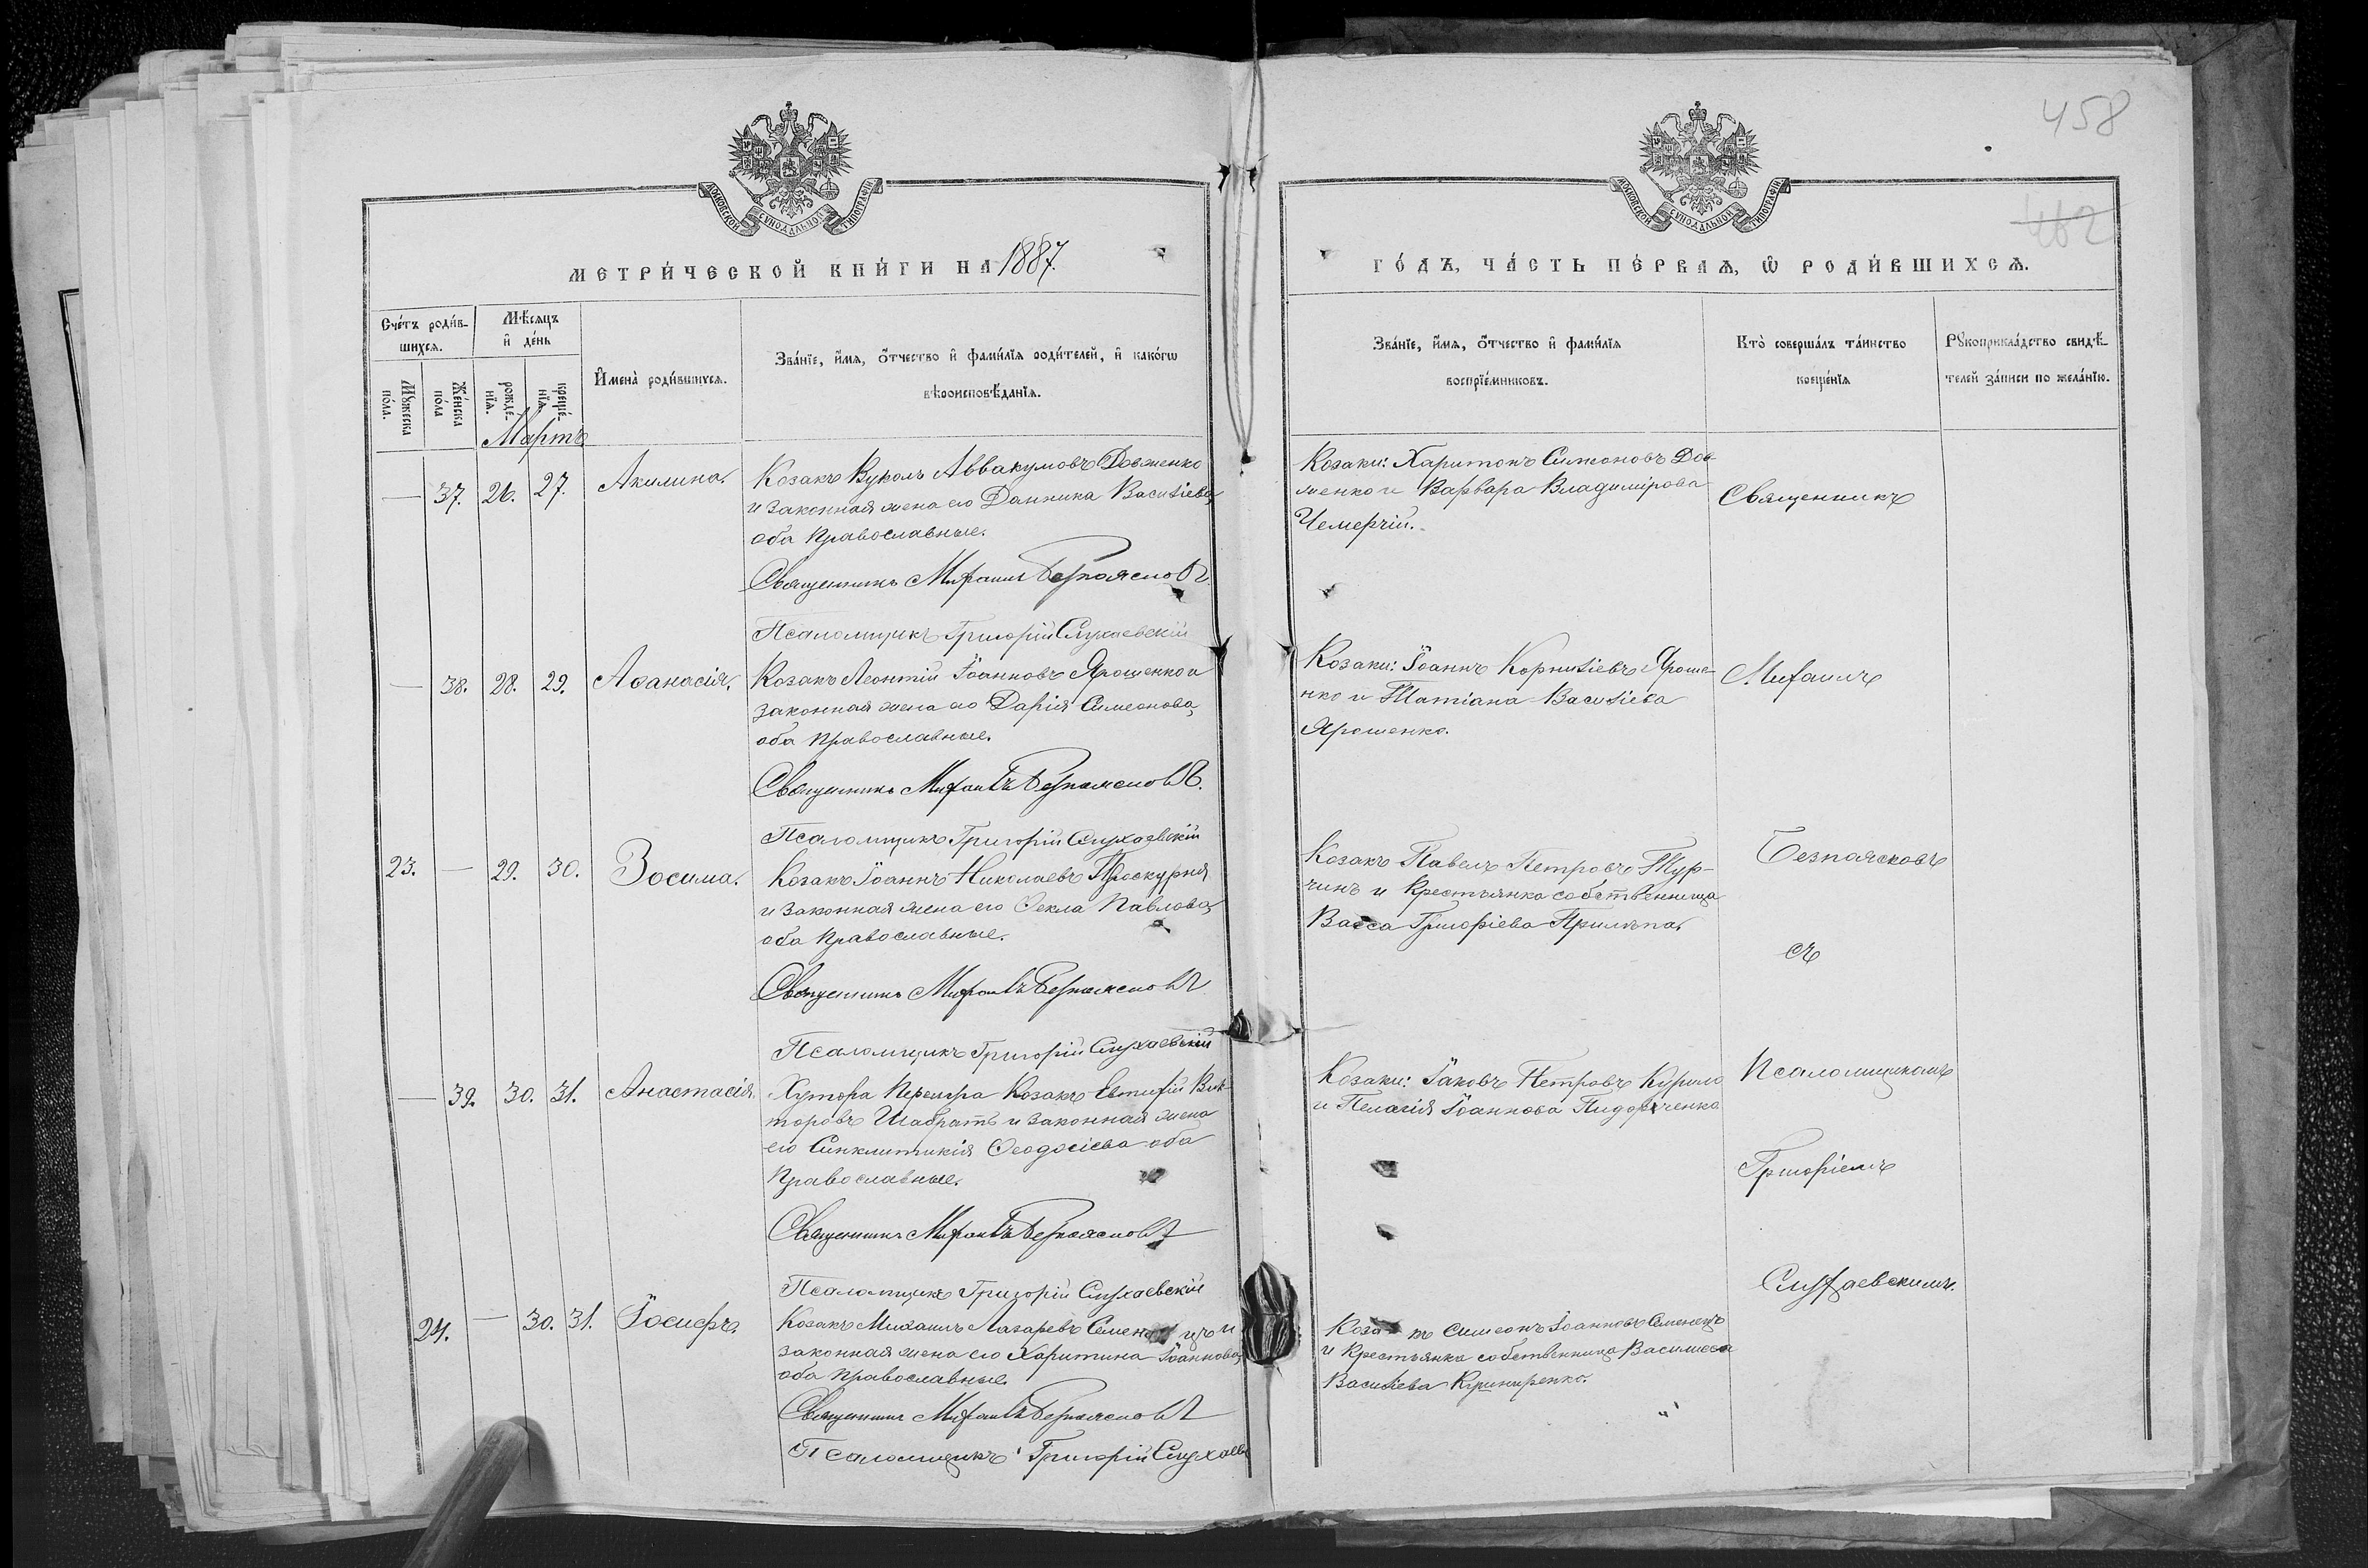 458
462
МОСКОВСКОЙ СѴНОДАЛЬНОЙ ТИПОГРАФІИ
МОСКОВСКОЙ СѴНОДАЛЬНОЙ ТИПОГРАФІИ
МЕТРИ́ЧЕСКОЙ КНИ́ГИ НА 1887.
ГО́ДЪ, ЧА́СТЬ ПЕ́РВАѦ, Ѡ҆ РОДИ́ВШИХСѦ.
Сче́тъ роди́в-
шихсѧ.
Мꙋжеска
по́ла.
Же́нска
по́ла
Мѣ́сѧцъ
и҆ де́нь
рожде-
нїѧ.
креще́-
нїѧ.
Мартъ
И҆мена̀ роди́вшихсѧ.
Зва́нїе, и҆́мѧ, ѻ҆́тчество и҆ фами́лїѧ роди́телей, и҆ како́гѡ
вѣроисповѣ́данїѧ.
Зва́нїе, и҆́мѧ, ѻ҆́тчество и҆ фами́лїѧ
воспрїе́мниковъ.
Кто̀ соверша́лъ та́инство
креще́нїѧ
Рꙋкоприкла́дство свидѣ́-
телей за́писи по жела́нїю.
— 37. 26. 27. Акилина.
Козакъ Вуколъ Аввакумовъ Довженко
и законная жена его Данника Василіева,
оба Православные.
Священникъ Михаилъ Безпоясковъ
Псаломщикъ Григорій Слухаевскій
Козаки: Харитонъ Симеоновъ Дов
женко и Варвара Владимірова
Чемерчій.
Священникъ
— 38. 28. 29. Аѳанасія.
Козакъ Леонтій Іоанновъ Ярошенко и
законная жена его Дарія Симеонова,
оба Православные.
Священникъ Михаилъ Безпоясковъ.
Псаломщикъ Григорій Слухаевскій
Козаки: Іоаннъ Корниліевъ Яроше-
нко и Татіана Василіева
Ярошенко.
Михаилъ
23. — 29. 30. Зосима.
Козакъ Іоаннъ Николаевъ Проскурня
и законная жена его Ѳекла Павлова,
оба Православные.
Священникъ Михаилъ Безпоясковъ
Псаломщикъ Григорій Слухаевскій
Козакъ Павелъ Петровъ Тур-
чинъ и Крестьянка собственница
Васса Григоріева Прилипа.
Безпоясковъ
съ
— 39. 30. 31. Анастасія.
Хутора Козакъ Евтихій Вик-
торовъ Шабратъ и законная жена
его Синклитикія Ѳеодосіева оба
Православные.
Священникъ Михаилъ Безпоясковъ
Псаломщикъ Григорій Слухаевскій
Козаки: Іаковъ Петровъ Курило
и Пелагія Іоаннова
Псаломщикомъ
Григоріемъ
Слухаевскимъ.
24. — 30. 31. Іосифъ.
Козакъ Михаилъ Лазаревъ Семенецъ и
законная жена его Харитина Іоаннова,
оба Православные.
Священникъ Михаилъ Безпоясковъ
Псаломщикъ Григорій Слухаевс
Козакъ Симеонъ Іоанновъ Семенецъ
и Крестьянка собственница Василиса
Василіева